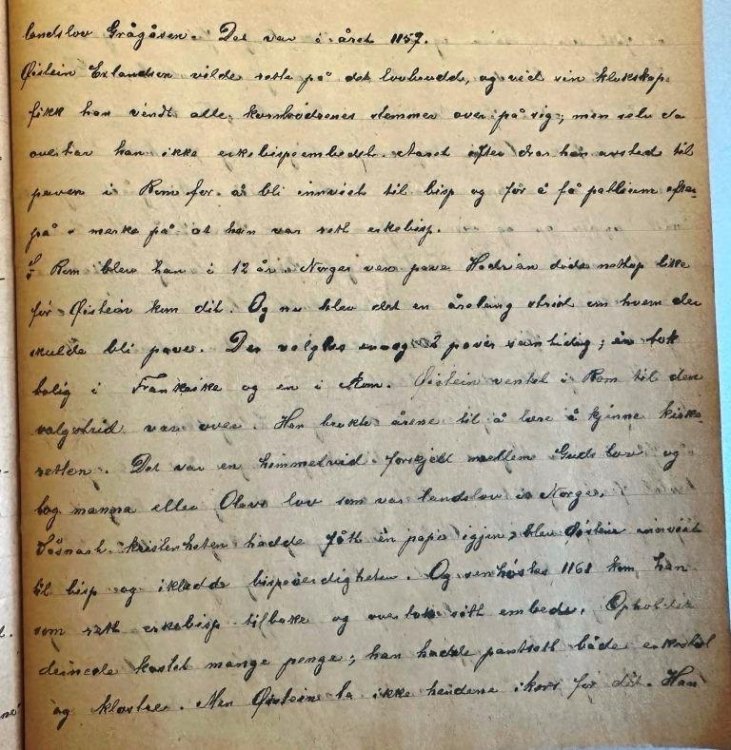 landslov Grågåsen. Det var i året 1157.
Øistein Erlandsen vilde rette på det lovbrudd, og ved sin klokskap
fikk han vindt alle korsbrødrenes stemmer over på sig; men selv da
overtar han ikke erkebispeembedet. Aaret efter drar han avsted til
paven i Rom for å bli innviet til bisp og for å få pallium efter-
på i merke på at han var rett erkebisp.
I Rom blev han i 12 år. Norges ven pave Hadrian døde nettop like
før Øistein kom dit. Og nu blev det en årelang strid om hvem der
skulde bli pave. Der valgtes endog 2 paver samtidig; en tok
bolig i Frankrike og en i Rom. Øistein ventet i Rom til den
valgstrid var over. Han brukte årene til å lære å kjenne kirke-
retten. Det var en himmelvid forskjell mellem Guds lov og
log manna eller Olavs lov som var landslov i Norge.
Såsnart kristenheten hadde fått en pape igjen, blev Øistein innviet
til bisp og iklædde bispeverdigheten. Og senhøstes 1161 kom han
som rett erkebisp tilbake og overtok sitt embede. Opholdet
derinede kostet mange penge; han hadde pantsatt både erkestol
og klostre. Men Øistein la ikke hendene i kors for det. Han